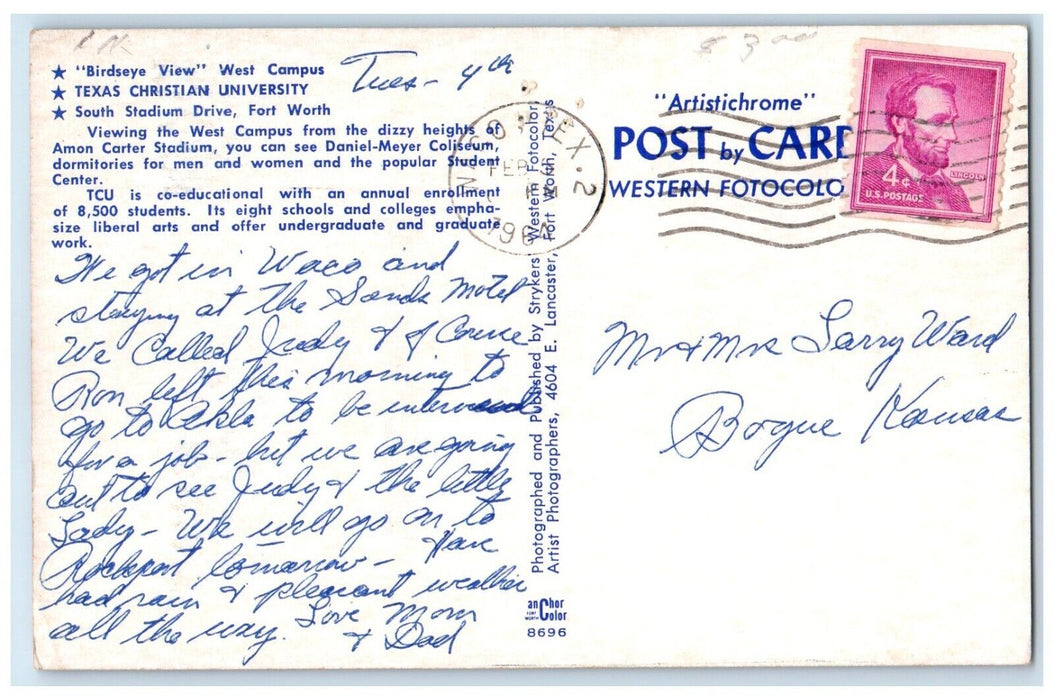 ★ "Birdseye View" West Campus
★ TEXAS CHRISTIAN UNIVERSITY
★ South Stadium Drive, Fort Worth
Viewing the West Campus from the dizzy heights of
Amon Carter Stadium, you can see Daniel-Meyer Coliseum,
dormitories for men and women and the popular Student
Center.
TCU is co-educational with an annual enrollment
of 8,500 students. Its eight schools and colleges empha-
size liberal arts and offer undergraduate and graduate
work.
Tues - 4th
We got in Waco and
staying at the Sands Motel
We Called Judy & of Course
Ron left this morning to
go to Okla to be interviewed
for a job - but we are going
out to see Judy & the little
Lady - We will go on to
Rockport tomorrow - Have
had rain & pleasant weather
all the way. Love Mom
& Dad
Photographed and Published by Strykers Western Fotocolor,
Artist Photographers, 4604 E. Lancaster, Fort Worth, Texas
anChor
FORT WORTH Color
8696
WACO TEX. 2
FEB
196
"Artistichrome"
POST by CARD
WESTERN FOTOCOLO
LINCOLN
4¢
U.S. POSTAGE
Mr & Mrs Larry Ward
Bogue Kansas